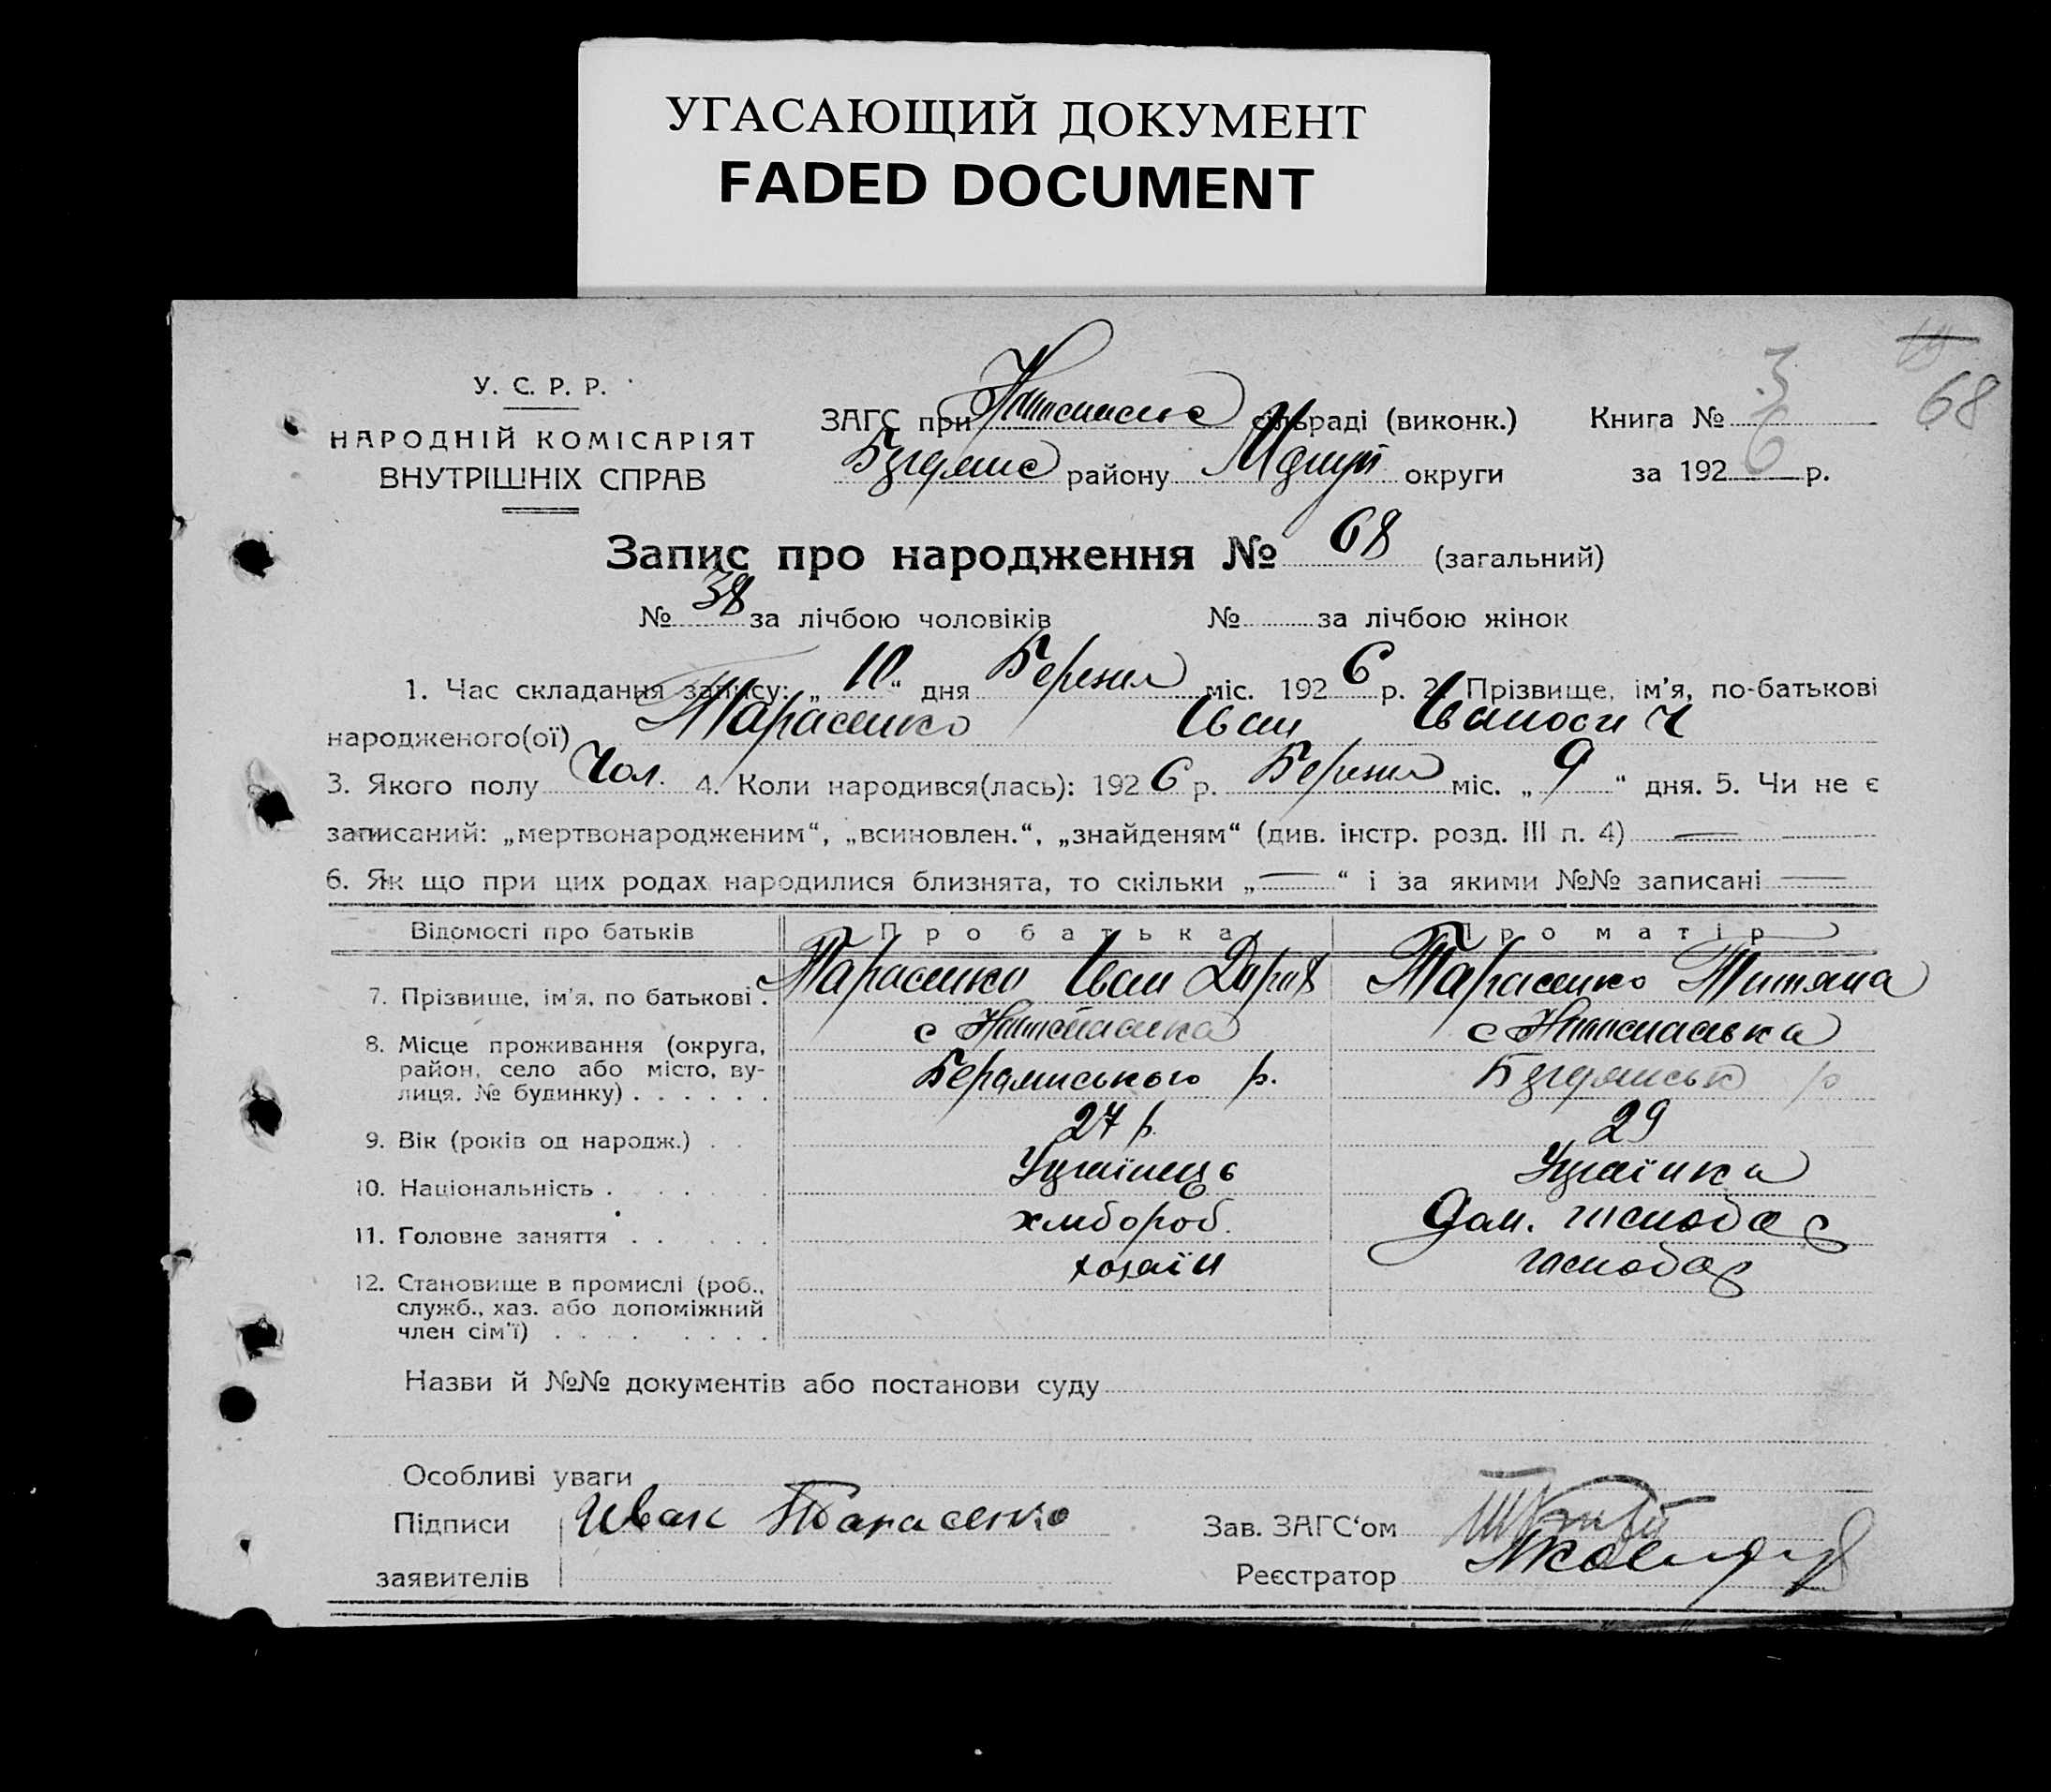 УГАСАЮЩИЙ ДОКУМЕНТ
FADED DOCUMENT
68
У. С. Р. Р.
НАРОДНІЙ КОМІСАРІЯТ
ВНУТРІШНІХ СПРАВ
ЗАГС при сільраді (виконк.)
району округи
Книга № 3
за 1926 р.
Запис про народження № 68 (загальний)
№ 38 за лічбою чоловіків № за лічбою жінок
1. Час складання запису: „10“ дня Березня міс. 1926 р. 2. Прізвище, ім'я, по-батькові
народженого(ої) Тарасенко Іван Іванович
3. Якого полу Чол. 4. Коли народився(лась): 1926 р. Березня міс. „9“ дня. 5. Чи не є
записаний: „мертвонародженим“, „всиновлен.“, „знайденям“ (див. інстр. розд. III п. 4) —
6. Як що при цих родах народилися близнята, то скільки „—“ і за якими №№ записані —
Відомості про батьків Про батька Про матір
7. Прізвище, ім'я, по батькові . Тарасенко Іван Тарасенко Титяна
8. Місце проживання (округа, с с
район, село або місто, ву- р.
лиця, № будинку) . . . . . .
9. Вік (років од народж.) . . 27 р. 29
10. Національність . . . . . Українець Українка
11. Головне заняття . . . . . хлібороб. Дом. господар
12. Становище в промислі (роб., хозаїн господар
служб., хаз. або допоміжний
член сім'ї) . . . . . . . .
Назви й №№ документів або постанови суду
Особливі уваги
Підписи Иван Тарасенко Зав. ЗАГС'ом
заявителів Реєстратор